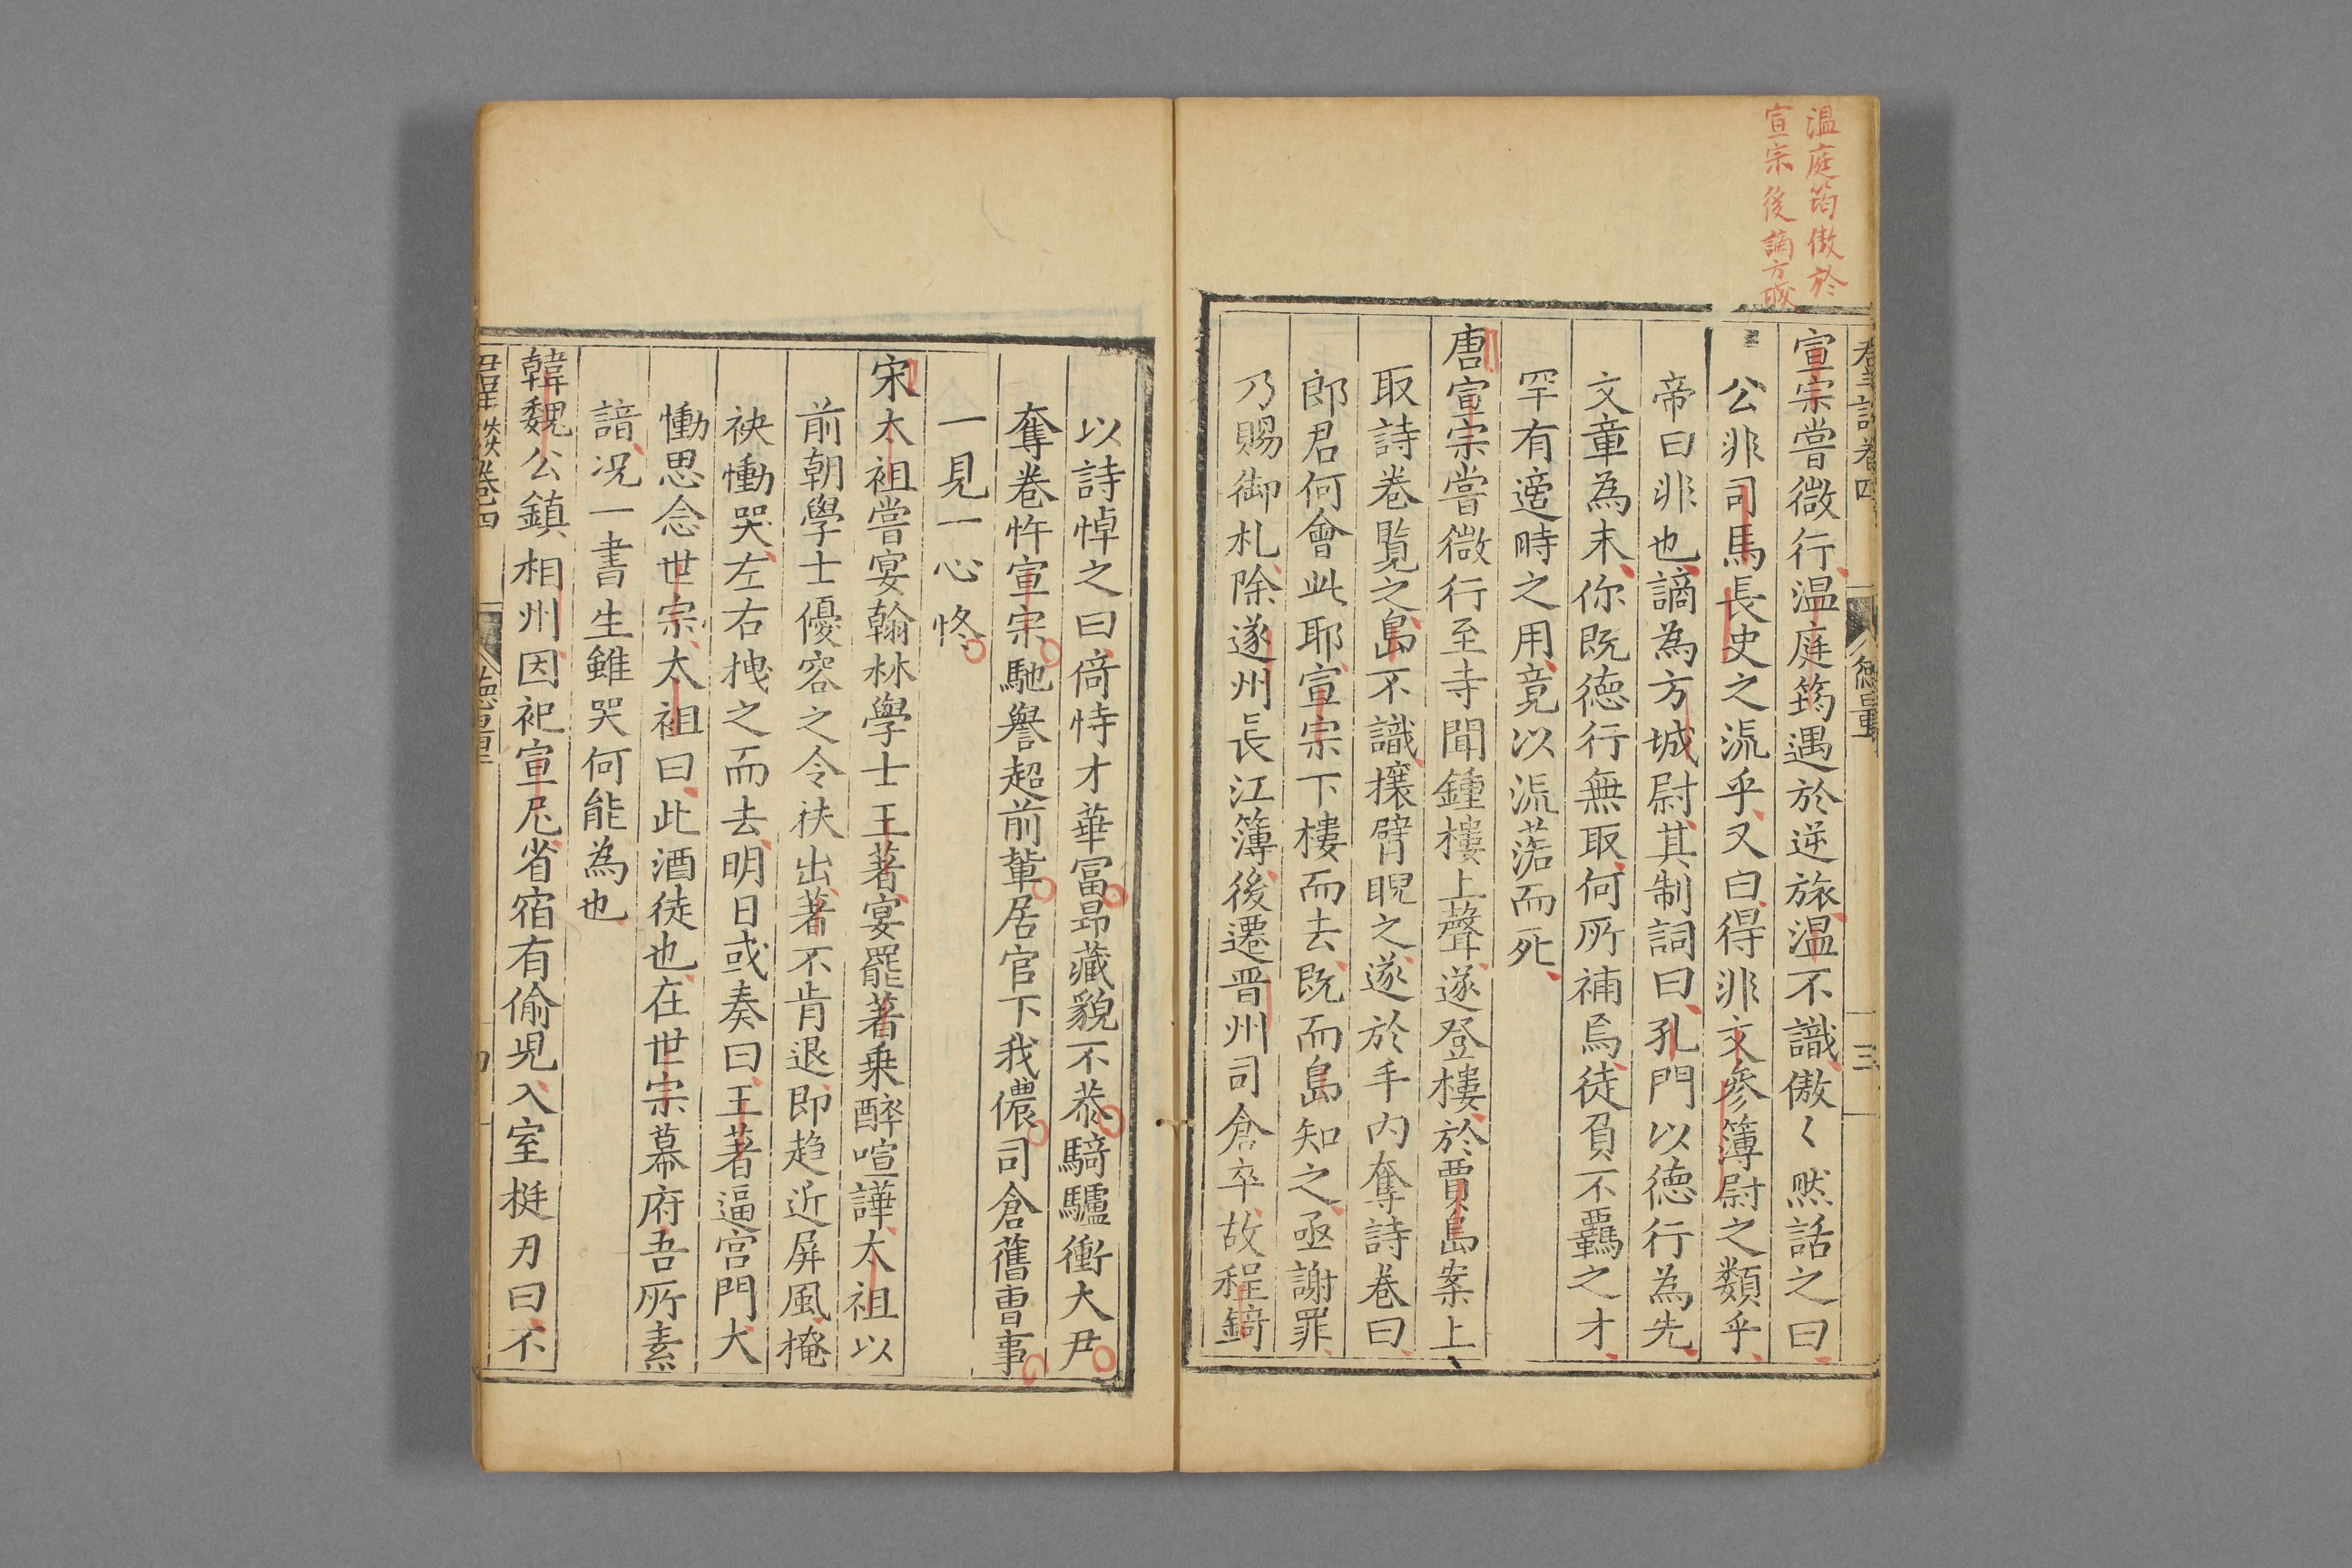 溫庭筠傲於
宣宗後謫方城
宣宗嘗微行温庭筠遇於逆旅温不識傲々然話之曰
公非司馬長史之流乎又曰得非文參簿尉之類乎
帝曰非也謫為方城尉其制詞曰孔門以德行為先
文章為末你既德行無取何所補焉徒負不羈之才
罕有適時之用竟以流落而死
唐宣宗嘗微行至寺聞鍾樓上聲遂登樓於賈島案上
取詩卷覽之島不識攘臂睨之遂於手內奪詩卷曰
郎君何會此耶宣宗下樓而去既而島知之亟謝罪
乃賜御札除遂州長江簿後遷晋州司倉卒故程錡
以詩悼之曰倚恃才華富昂藏貌不恭騎驢衝大尹
奪卷忤宣宗馳譽超前輩居官下我儂司倉舊曹事
一見一心忡
宋太祖嘗宴翰林學士王著宴罷著乗醉喧譁太祖以
前朝學士優容之令扶出著不肯退即趋近屏風掩
袂慟哭左右拽之而去明日或奏曰王著逼宫門大
慟思念世宗太祖曰此酒徒也在世宗幕府吾所素
諳况一書生雖哭何能為也
韓魏公鎮相州因祀宣尼省宿有偷児入室挺刃曰不